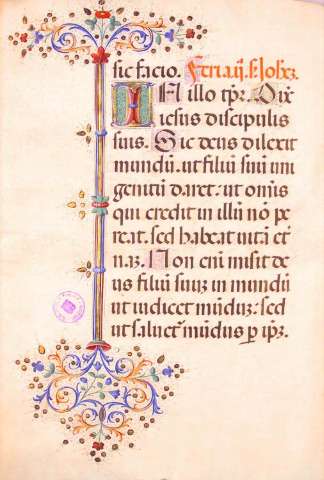 sic facio. Feria.ij. s. Johez
IN illo tpr. Dix
iesus discipulis
suis. Sic deus dilexit
mundū. ut filiū suū uni
genitū daret: ut omīs
qui credit in illū nō pe
reat. sed habeat uitā et
naz. Non enī misit de
us filiuz suuz in mundū
ut iudicet mūduz: sed
ut saluet mūdus p ipz.